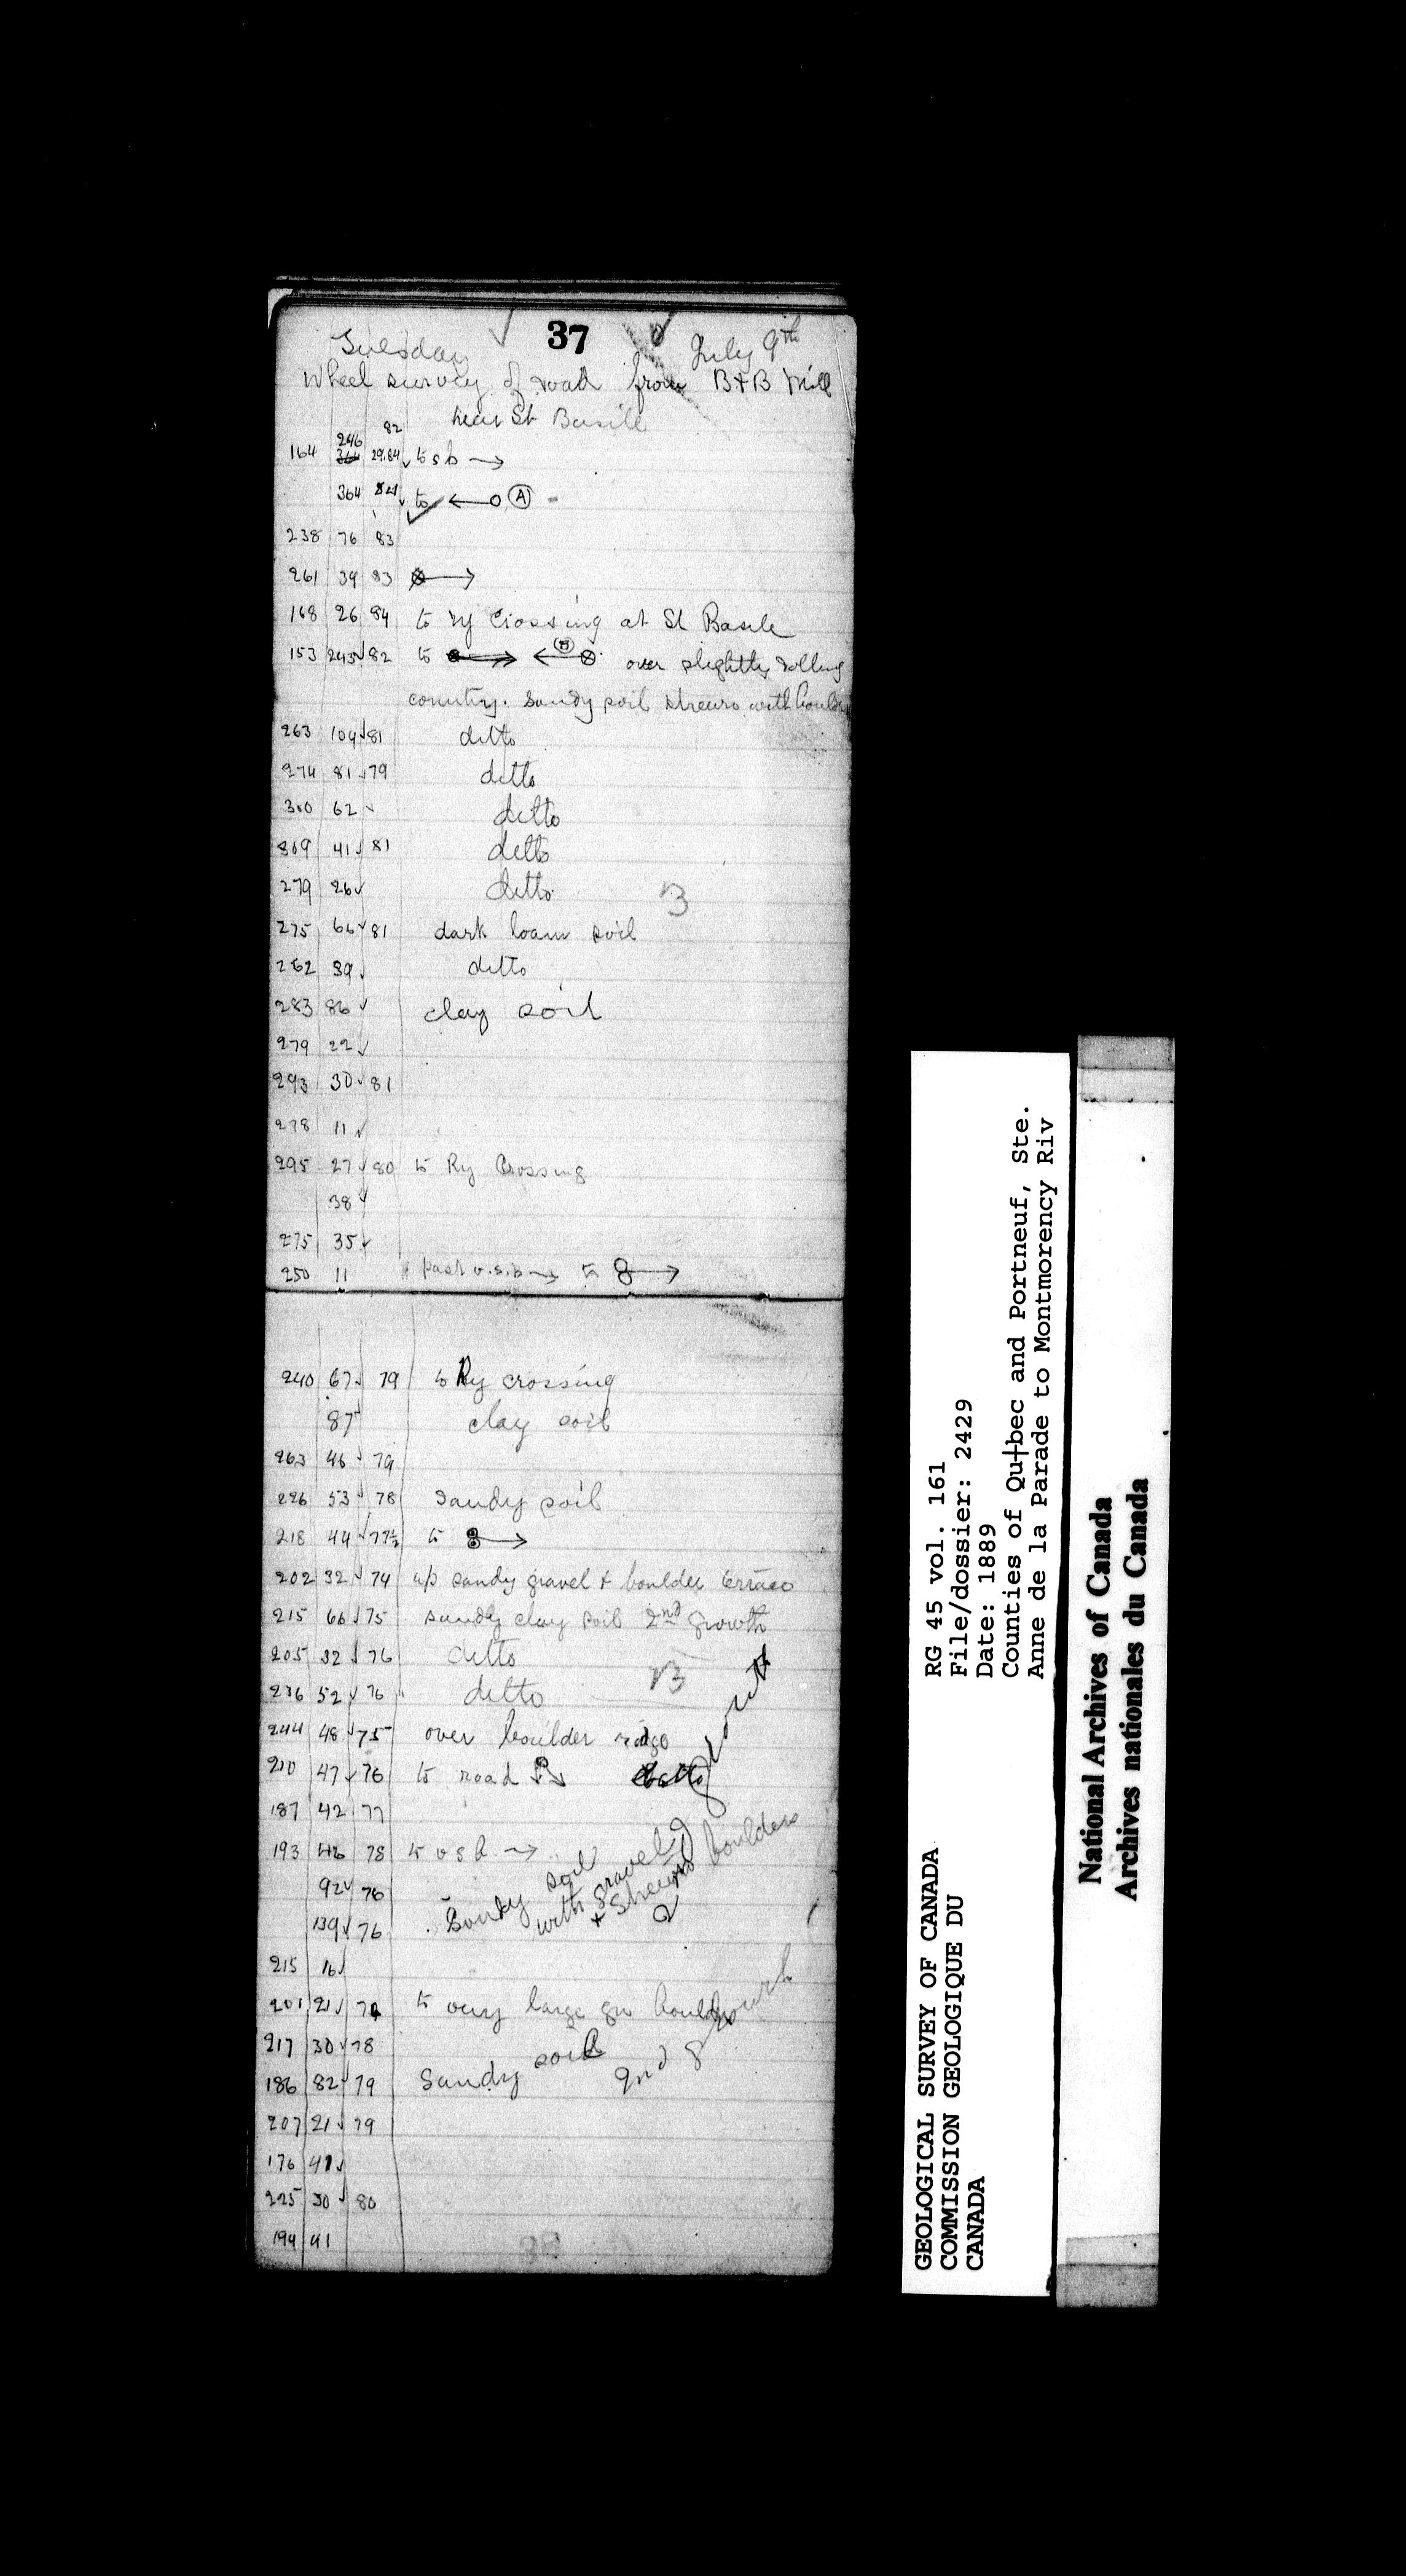 37
Tuesday July 9th
Wheel survey of road from B+B Mill
near St Basile
82
246
164 364 29.84 to s b →
364 84 to ← o A
238 76 83
261 39 83 →
168 26 84 to Ry Crossing at St Basile
153 243 82 to → ← B over slightly rolling
country. Sandy soil strewn with boulders
263 104 81 ditto
274 81 79 ditto
300 62 ditto
309 41 81 ditto
279 26 ditto B
275 66 81 dark loam soil
262 39 ditto
283 86 clay soil
279 22
293 30 81
278 11
295 27 80 to Ry Crossing
38
275 35
250 11 past v.s.b → to 8 →
240 67 79 to Ry crossing
87 clay soil
263 46 79
226 53 78 Sandy soil
218 44 77½ to 8 →
202 32 74 up sandy gravel + boulder terrace
215 66 75 sandy clay soil 2nd growth
205 32 76 ditto
236 52 76 ditto B
244 48 75 over boulder ridge
210 47 76 to road
187 42 77
193 46 78 to v s b →
92 76
139 76 Sandy soil with gravel + strewn boulders 2nd growth
215 16
201 21 78 to very large gn boulder
217 30 78
186 82 79 Sandy soil 2nd growth
207 21 79
176 41
225 30 80
194 41
GEOLOGICAL SURVEY OF CANADA
COMMISSION GEOLOGIQUE DU
CANADA
RG 45 vol. 161
File/dossier: 2429
Date: 1889
Counties of Qu†bec and Portneuf, Ste.
Anne de la Parade to Montmorency Riv
National Archives of Canada
Archives nationales du Canada